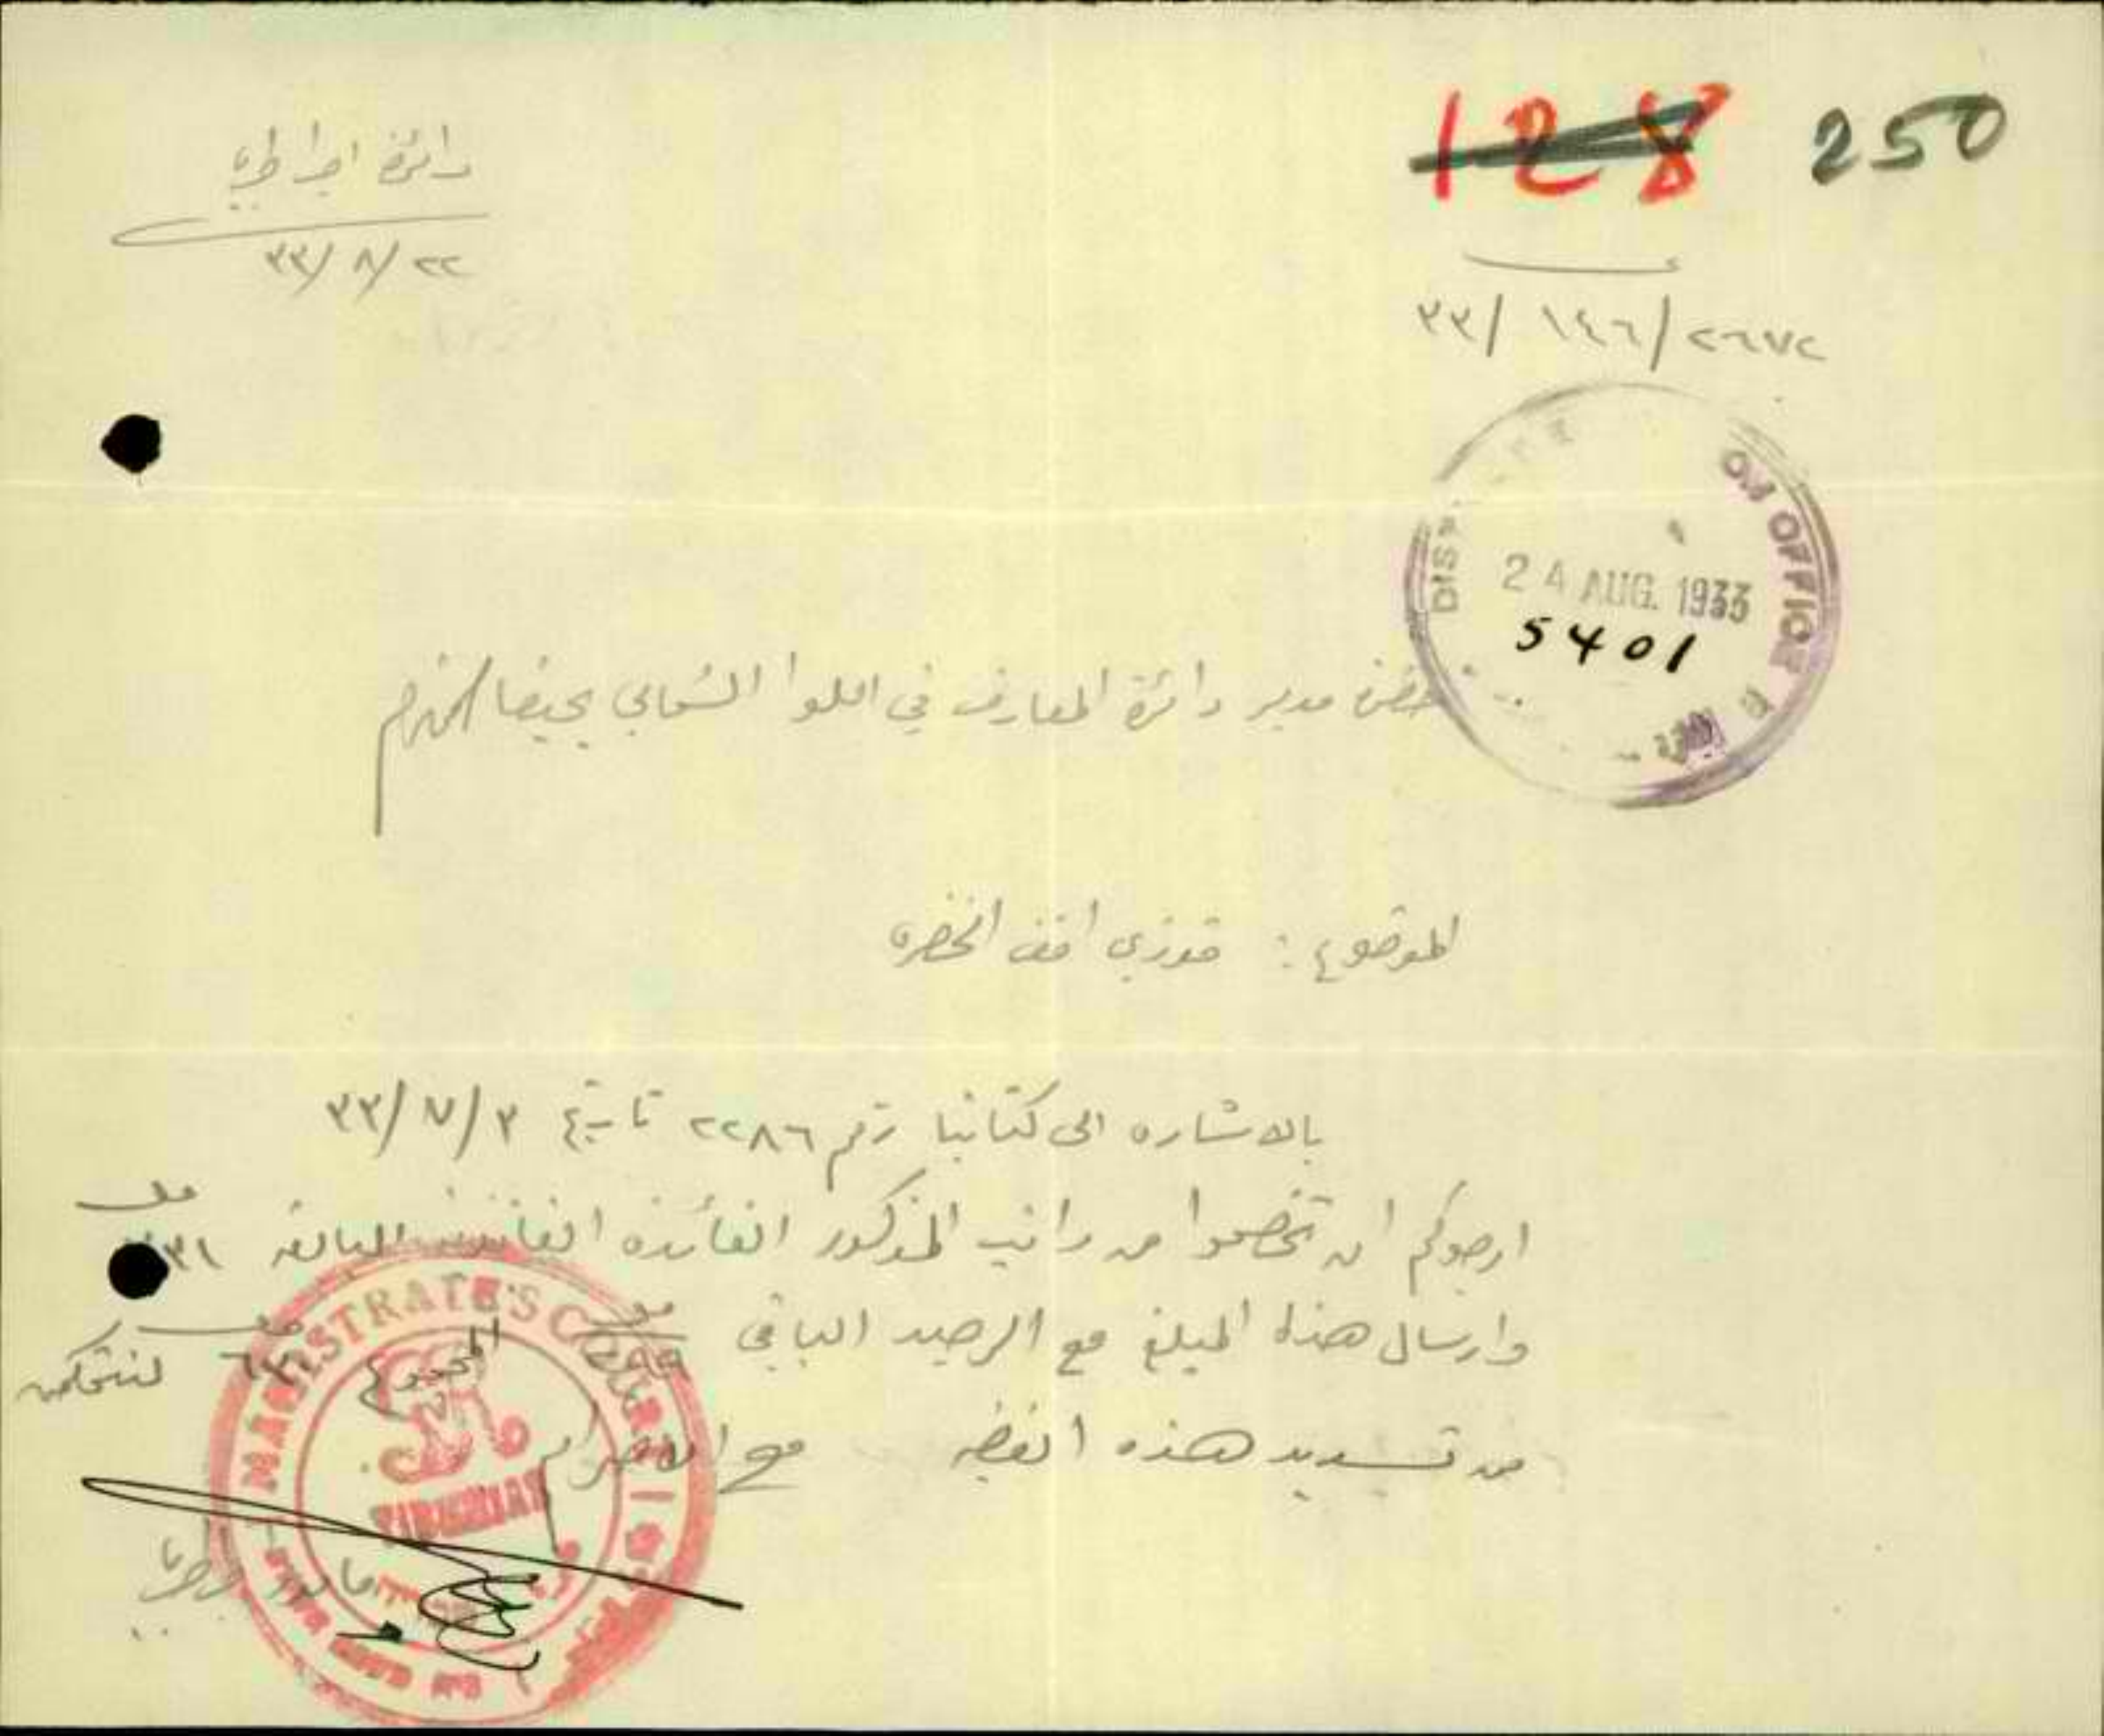 128 250
دائرة اجرا طبريا
٢٢/٨/٣٣
٢٦٧٢/١٤٦/٣٣
OM OFFICE
24 AUG. 1933
5401
حضرة مدير دائرة المعارف في اللوا الشمالي بحيفا المحترم
الموضوع: فوزي افندي الخضرا
بالاشاره الى كتابنا رقم ٢٢٨٦ تاريخ ٣/٧/٣٣
ارجوكم ان تخصموا من راتب المذكور الفائده القانونيه البالغه
مل
وارسال هذا المبلغ مع الرصيد الباقي
المجموع
لنتمكن
من تسديد هذه القضيه مع الاحترام
MAGISTRATE'S COURT
TIBERIAS
مامور اجرا طبريا